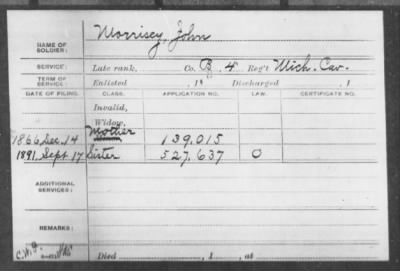 Morrisey, John
NAME OF SOLDIER:
SERVICE: Late rank, Co. B, 4 Reg't Mich. Cav.
TERM OF SERVICE: Enlisted , 1 Discharged , 1
DATE OF FILING. CLASS. APPLICATION NO. LAW. CERTIFICATE NO.
Invalid,
Widow,
1866 Dec. 14 Mother 139.015
1891, Sept 17 Sister 527.637 O
ADDITIONAL SERVICES:
REMARKS:
Died , 1 , at